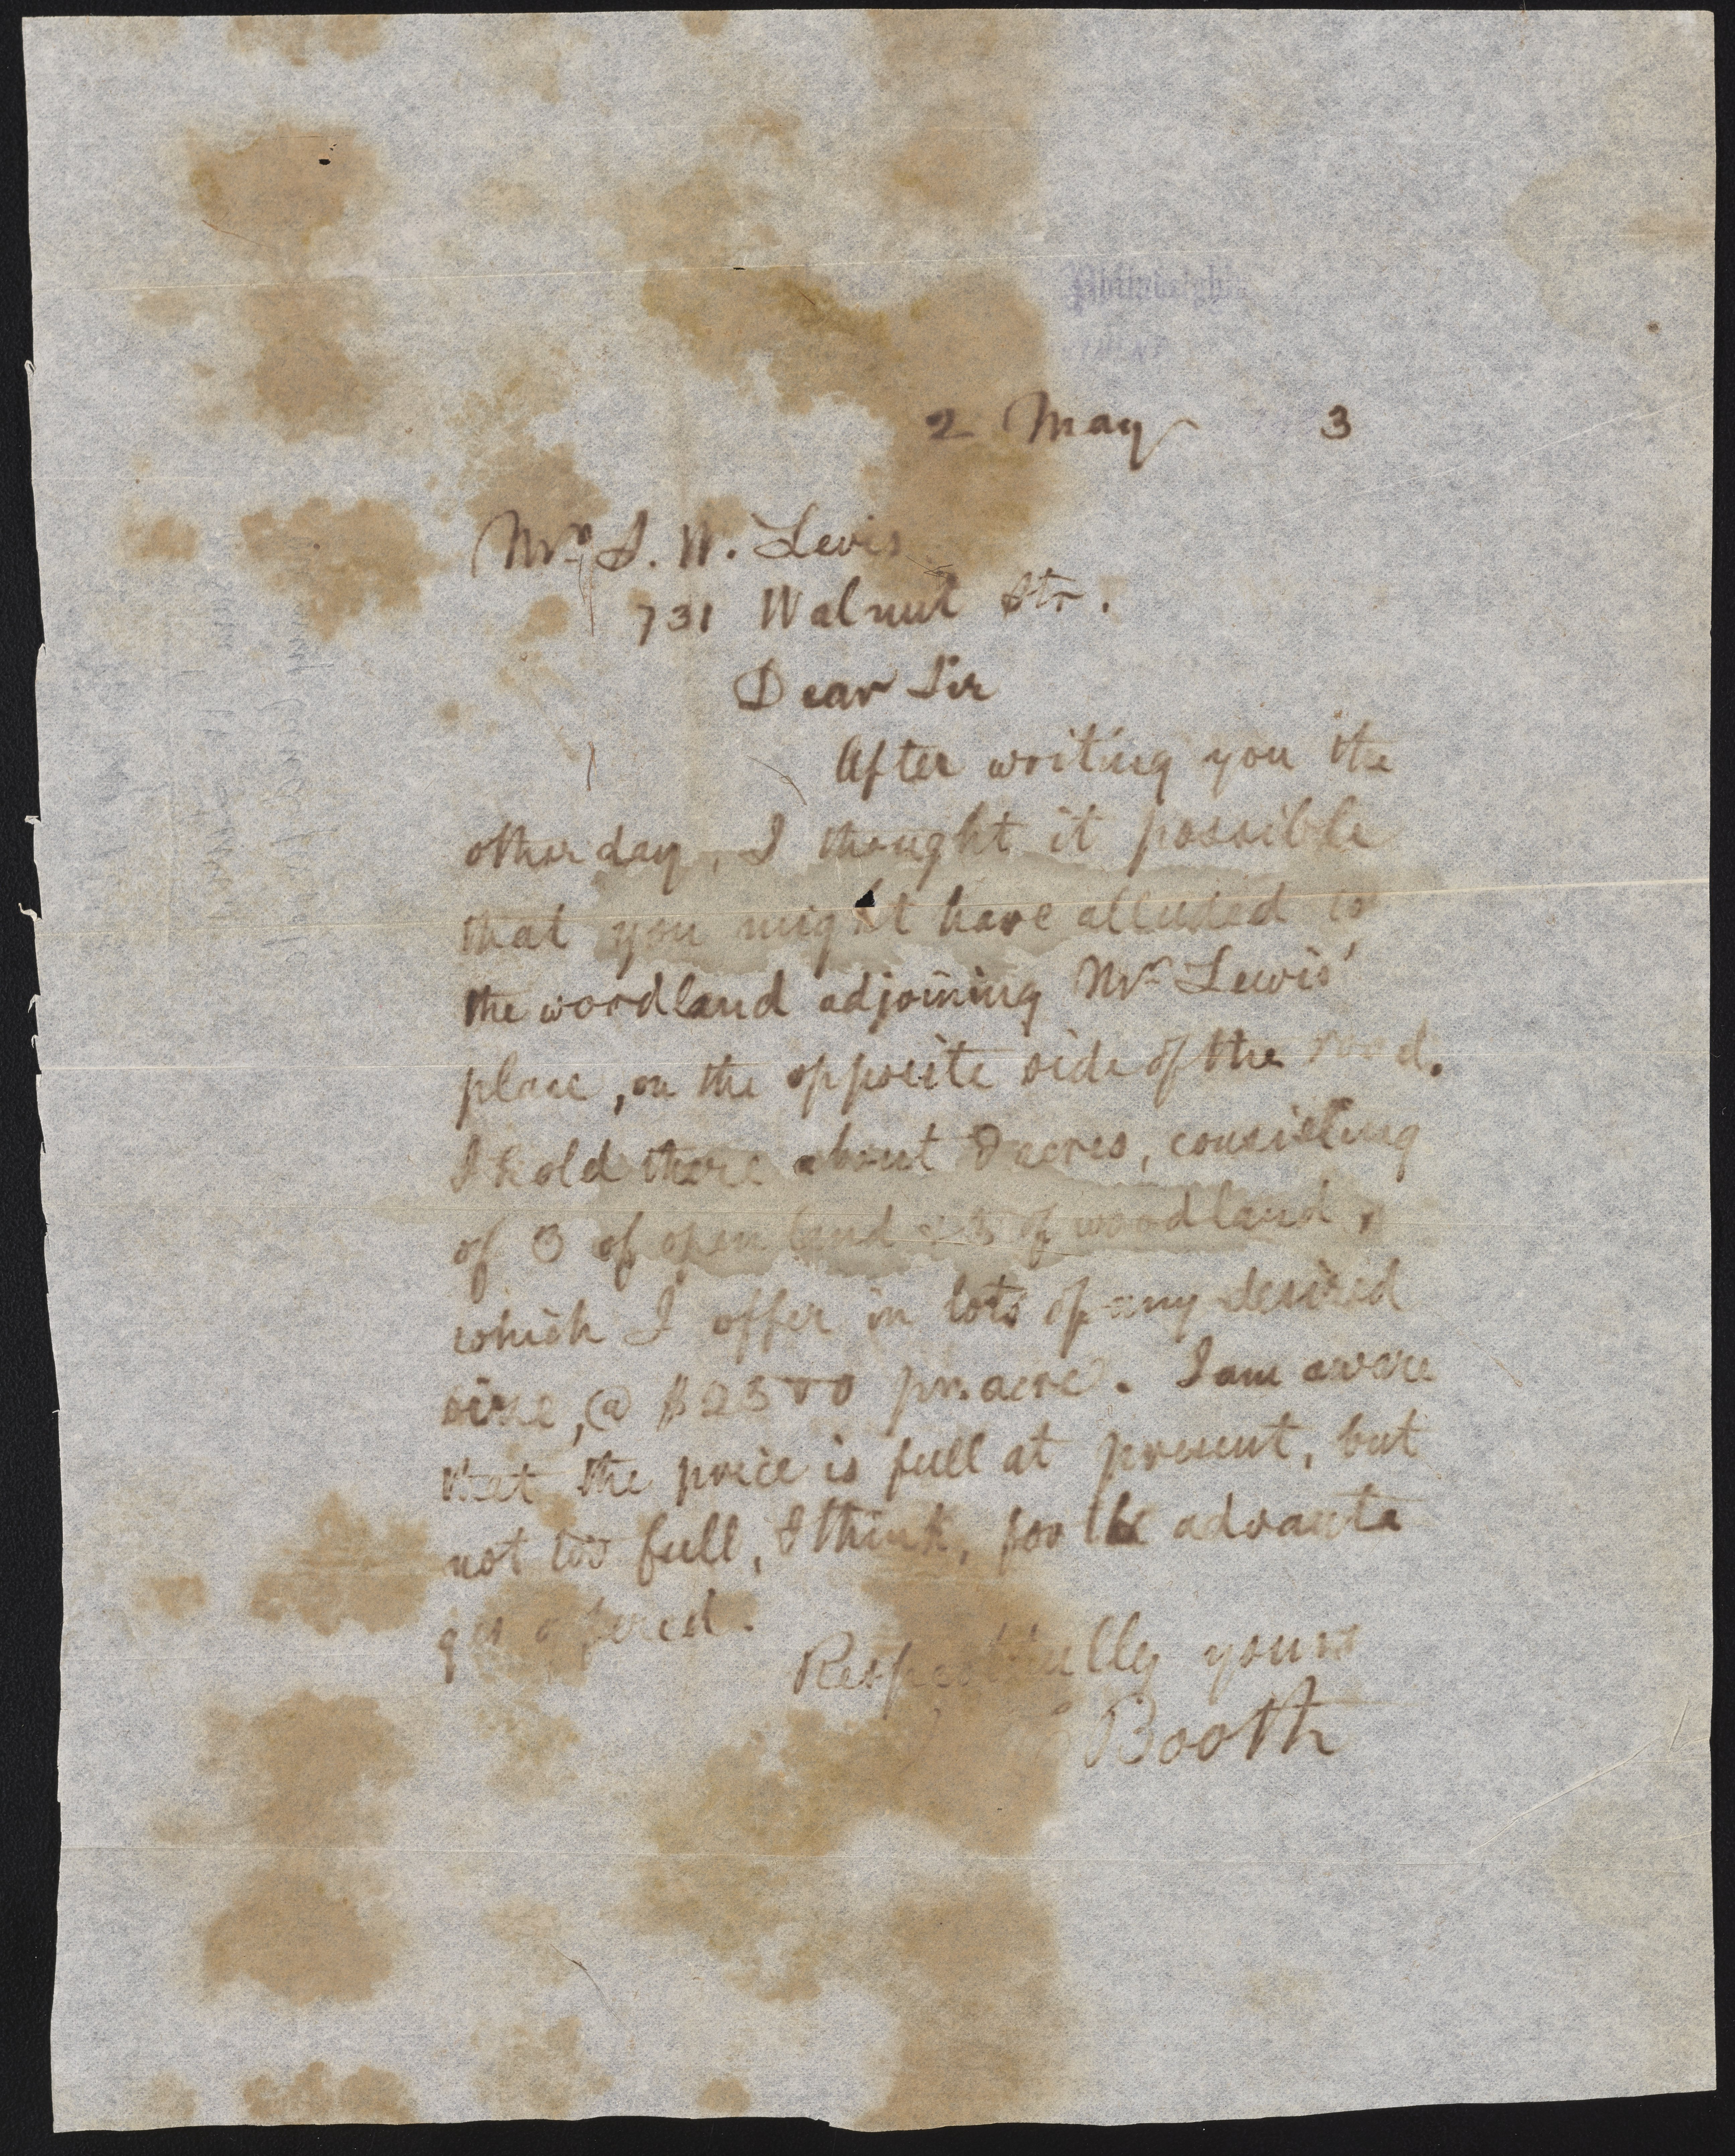 2 May 3
Mr. S. W. Levis
731 Walnut Str.
Dear Sir
After writing you the
other day, I thought it possible
that you might have alluded to
the woodland adjoining Mr Lewis'
place, on the opposite side of the road.
I hold there about 8 acres, consisting
of 3 of open land & 5 of woodland,
which I offer in lots of any desired
size, @ $2500 pr. acre. I am aware
that the price is full at present, but
not too full, I think, for the advanta
ges offered.
Respectfully yours
Booth